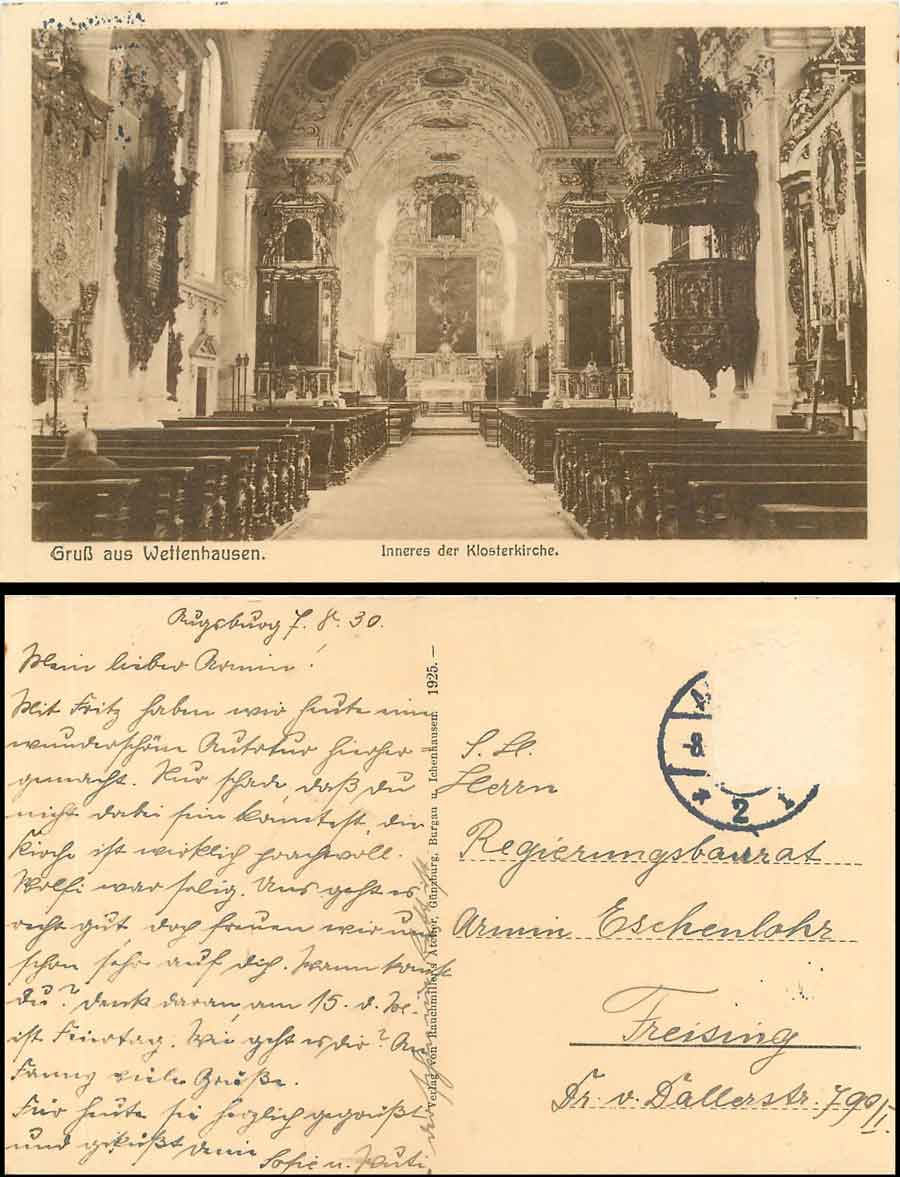 Gruß aus Wettenhausen.
Inneres der Klosterkirche.
Augsburg 7. 8. 30.
Mein lieber Armin!
Mit Fritz haben wir heute eine
wunderschöne Autotur hierher
gemacht. Nur schade, daß du
nicht dabei sein konntest, die
Kirche ist wirklich prachtvoll.
Wolfi war selig. Uns geht es
recht gut doch freuen wir uns
schon sehr auf dich. Wann kommst
du? Denk daran, am 15. d. M.
ist Feiertag. Wie geht es dir? An
Fanny viele Grüße.
Für heute sei herzlich gegrüßt
und geküßt deine
Sofie u. Mutti
Verlag von Rauchmiller's Atelier, Günzburg, Burgau u. Ichenhausen. 1925.—
-8.
* 2
S. H.
Herrn
Regierungsbaurat
Armin Eschenlohr
Freising
Dr. v. Dallerstr. 790/I.